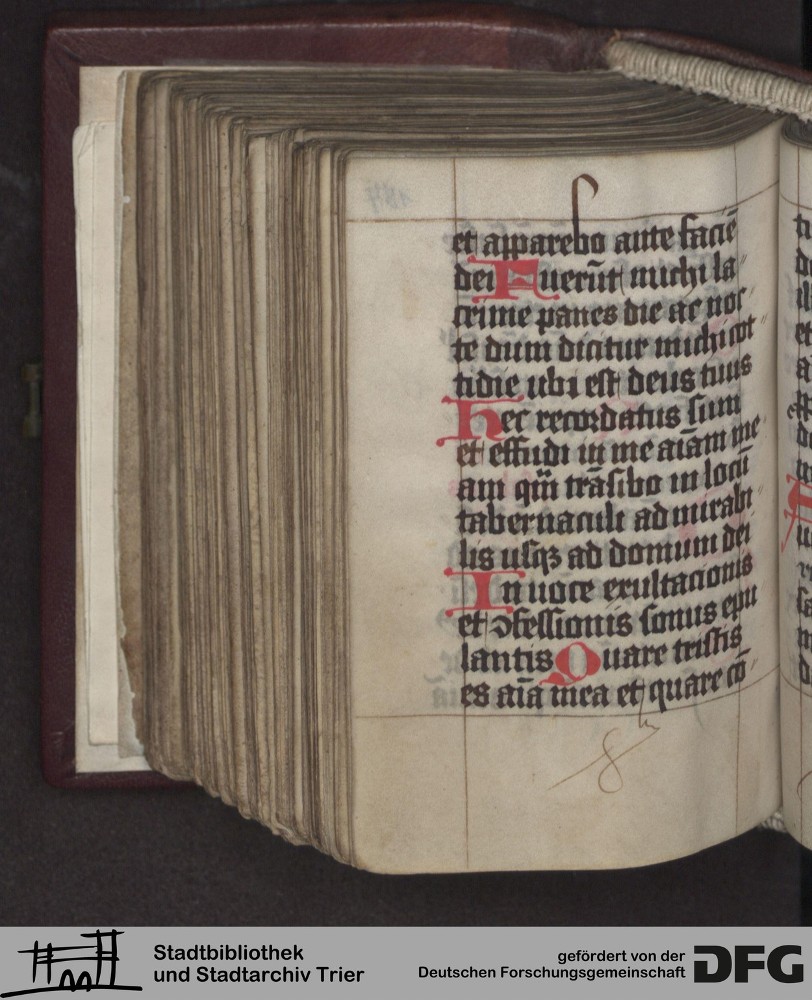 et apparebo ante faciē
dei Fuerūt michi la
crime panes die ac noc
te dum dicitur michi cot
tidie ubi est deus tuus
Hec recordatus sum
et effudi in me aīam me
am qm̄ trāsibo in locū
tabernaculi admirabi
lis usqꝫ ad domum dei
In uoce exultacionis
et ↄfessionis sonus epu
lantis Quare tristis
es aīa mea et quare cō
Stadtbibliothek
und Stadtarchiv Trier
gefördert von der
Deutschen Forschungsgemeinschaft
DFG